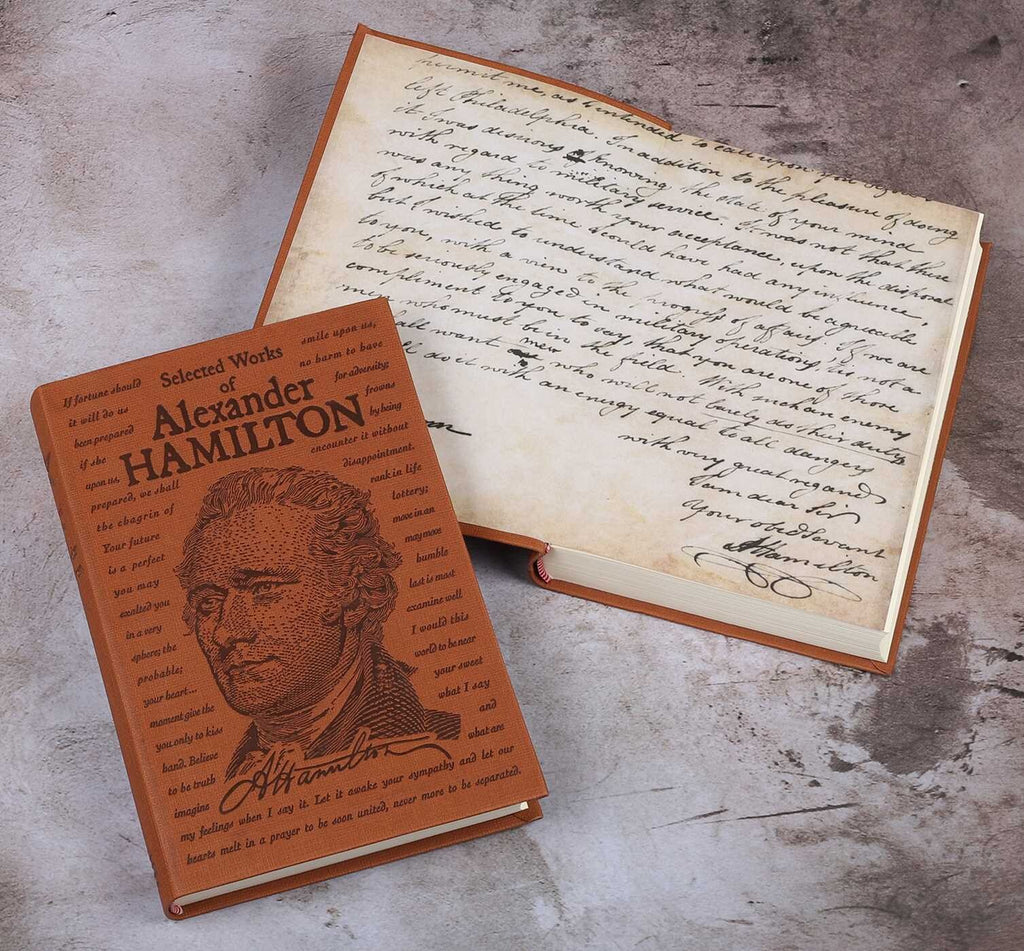 Selected Works
of
Alexander
HAMILTON
If fortune should smile upon us,
it will do us no harm to have
been prepared for adversity;
if she frowns
upon us, by being
prepared, we shall encounter it without
the chagrin of disappointment.
Your future rank in life
is a perfect lottery;
you may move in an
exalted you may move
in a very humble
sphere; the last is most
probable; examine well
your heart... I would this
moment give the world to be near
you only to kiss your sweet
hand. Believe what I say
to be truth and
imagine what are
my feelings when I say it. Let it awake your sympathy and let our
hearts melt in a prayer to be soon united, never more to be separated.
AHamilton
permit me, as I intended to
left Philadelphia. In addition to the pleasure of doing
it I was desirous of knowing the state of your mind
with regard to military service. I was not that there
was any thing worth your acceptance, upon the disposal
of which at the time I could have had any influence,
but I wished to understand what would be agreeable
to you, with a view to the progress of affairs. If we are
to be seriously engaged in military operations, tis not a
compliment to you to say, that you are one of those
men who must be in the field. With such an enemy
all want men who will not barely do their duty
do it with an energy equal to all dangers
with very great regard
I am dear Sir
Your obed Servant
AHamilton